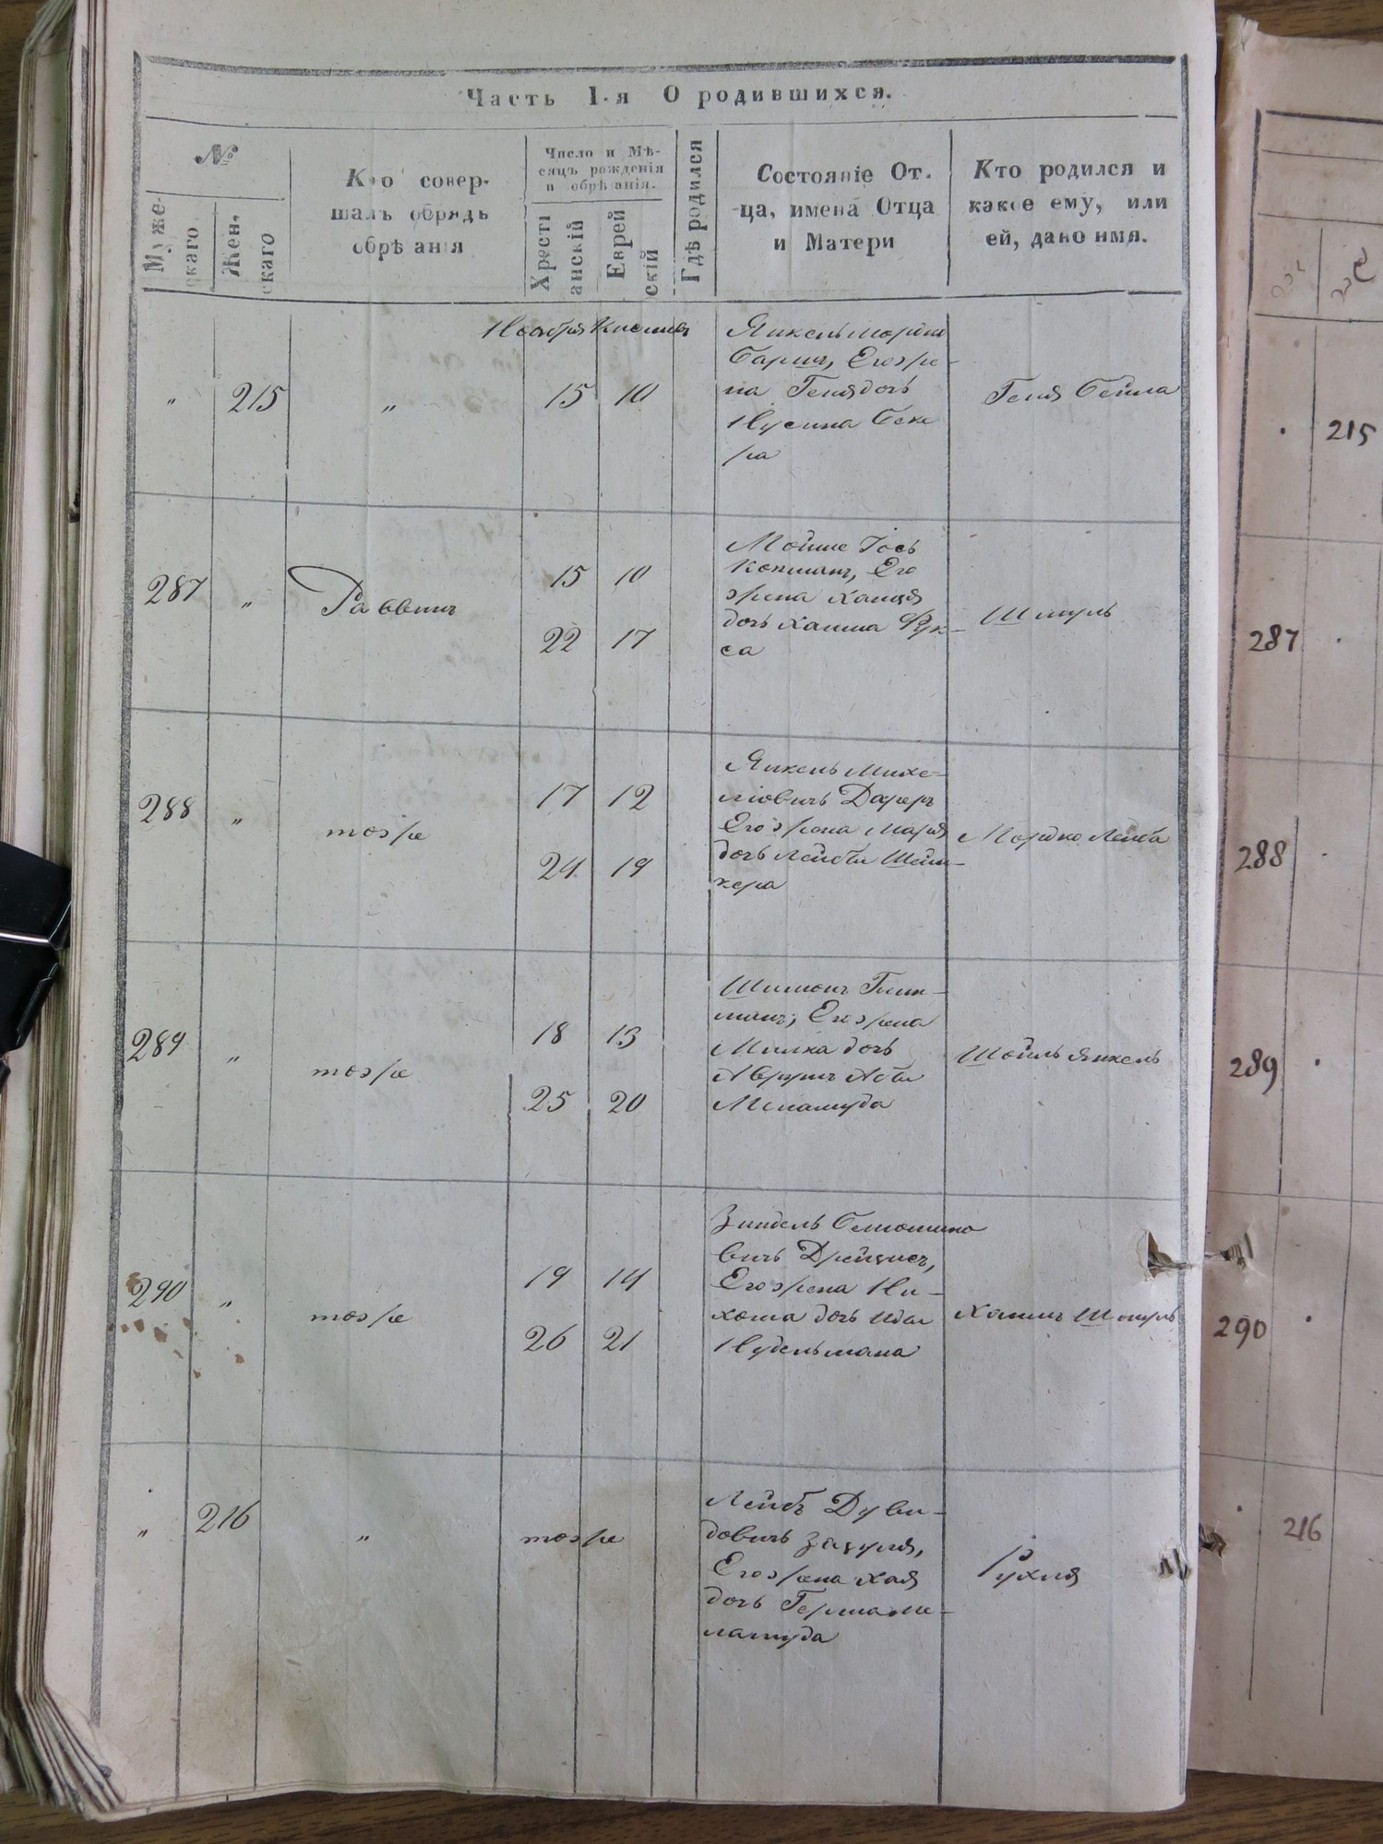 Часть 1-я О родившихся.
№
Муже-
скаго
Жен-
скаго
Кто совер-
шалъ обрядъ
обрѣзанія
Число и Мѣ-
сяцъ рожденія
и обрѣзанія.
Христі
анскій
Еврей
скій
Гдѣ родился
Состояніе От-
ца, имена Отца
и Матери
Кто родился и
какое ему, или
ей, дано имя.
Ноября Кислива
" 215 " 15 10
Янкель Мордко
Его же-
на Геня дочь
Нусина
Геня Бейла
287 " Раввинъ 15 10
22 17
Мойше Іось
Копманъ, Его
жена Ханця
дочь Хаима Фук-
са
Шмуль
288 " тоже 17 12
24 19
Янкель Михе-
ліовичъ
Его жена Маря
дочь Лейбы
кера
Мордко Лейба
289 " тоже 18 13
25 20
Шимонъ
манъ, Его жена
Милка дочь
Аврумъ Абы
Меламуда
Шойль Янкель
290 " тоже 19 14
26 21
Зиндель
вичъ
Его жена Не-
хома дочь Идля
Нудельмана
Хаимъ Шмуль
" 216 " тоже
Лейбъ Дуви-
довичъ
Его жена Хая
дочь Герша Ме-
ламуда
Рухля
215
287
288
289
290
216